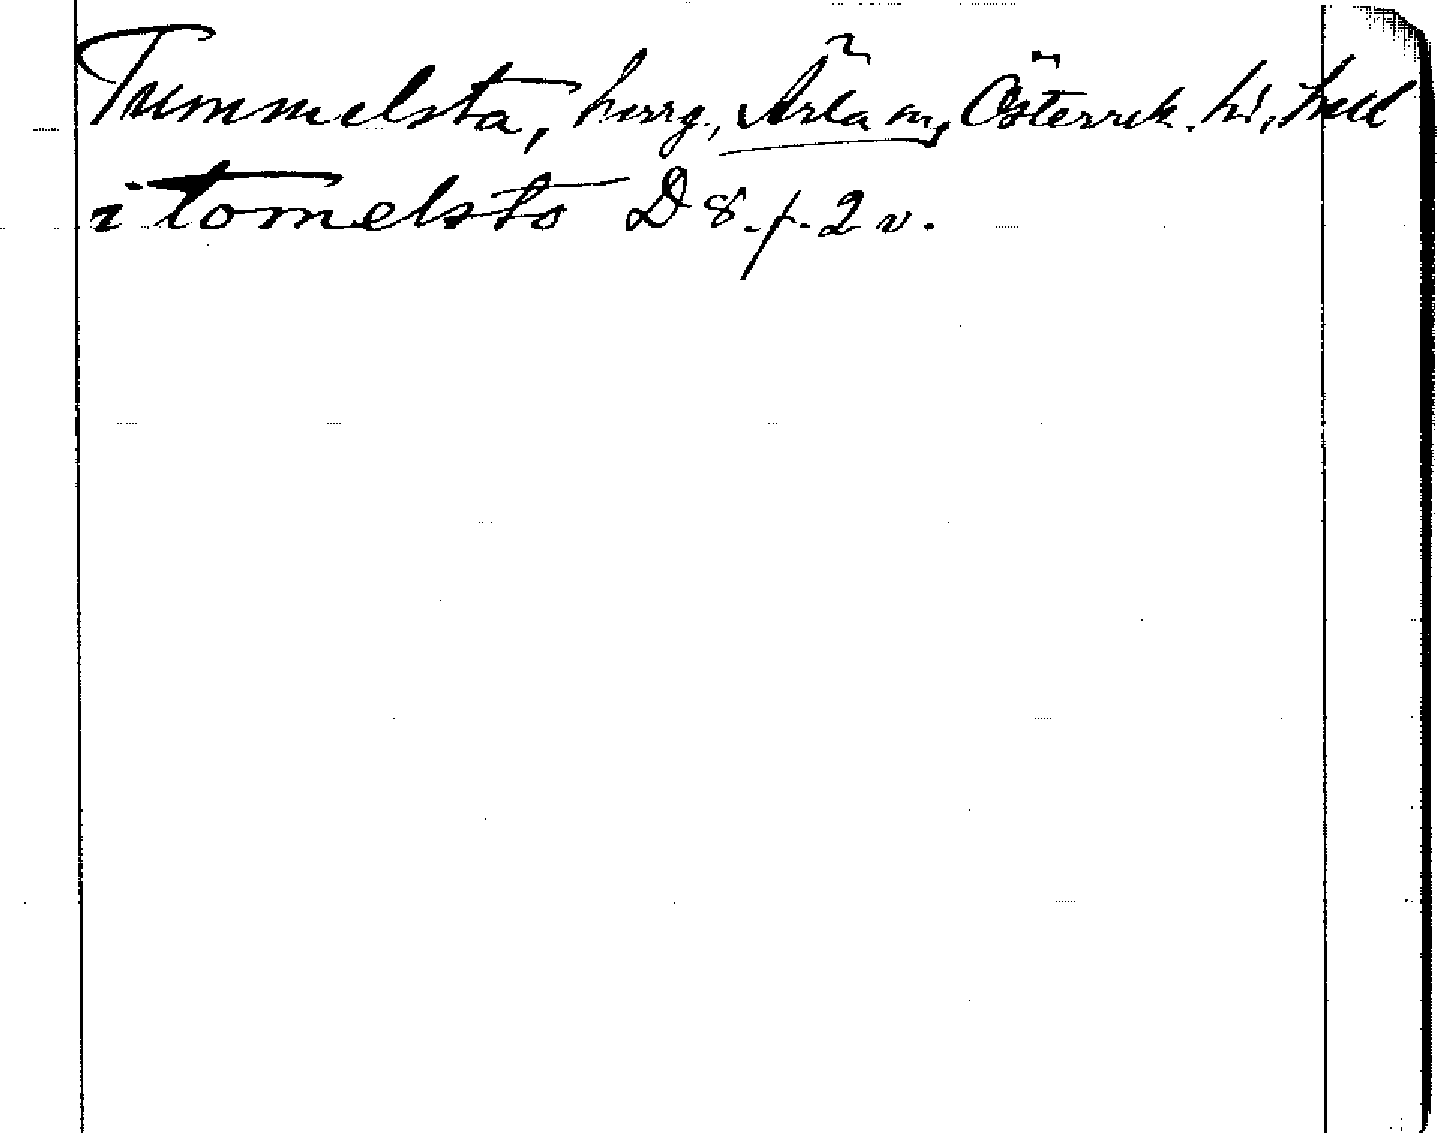 Tummelsta, herrg., Ärla sn, Österrek. hd, Södl
i tomelsto D 8. f. 2 v.